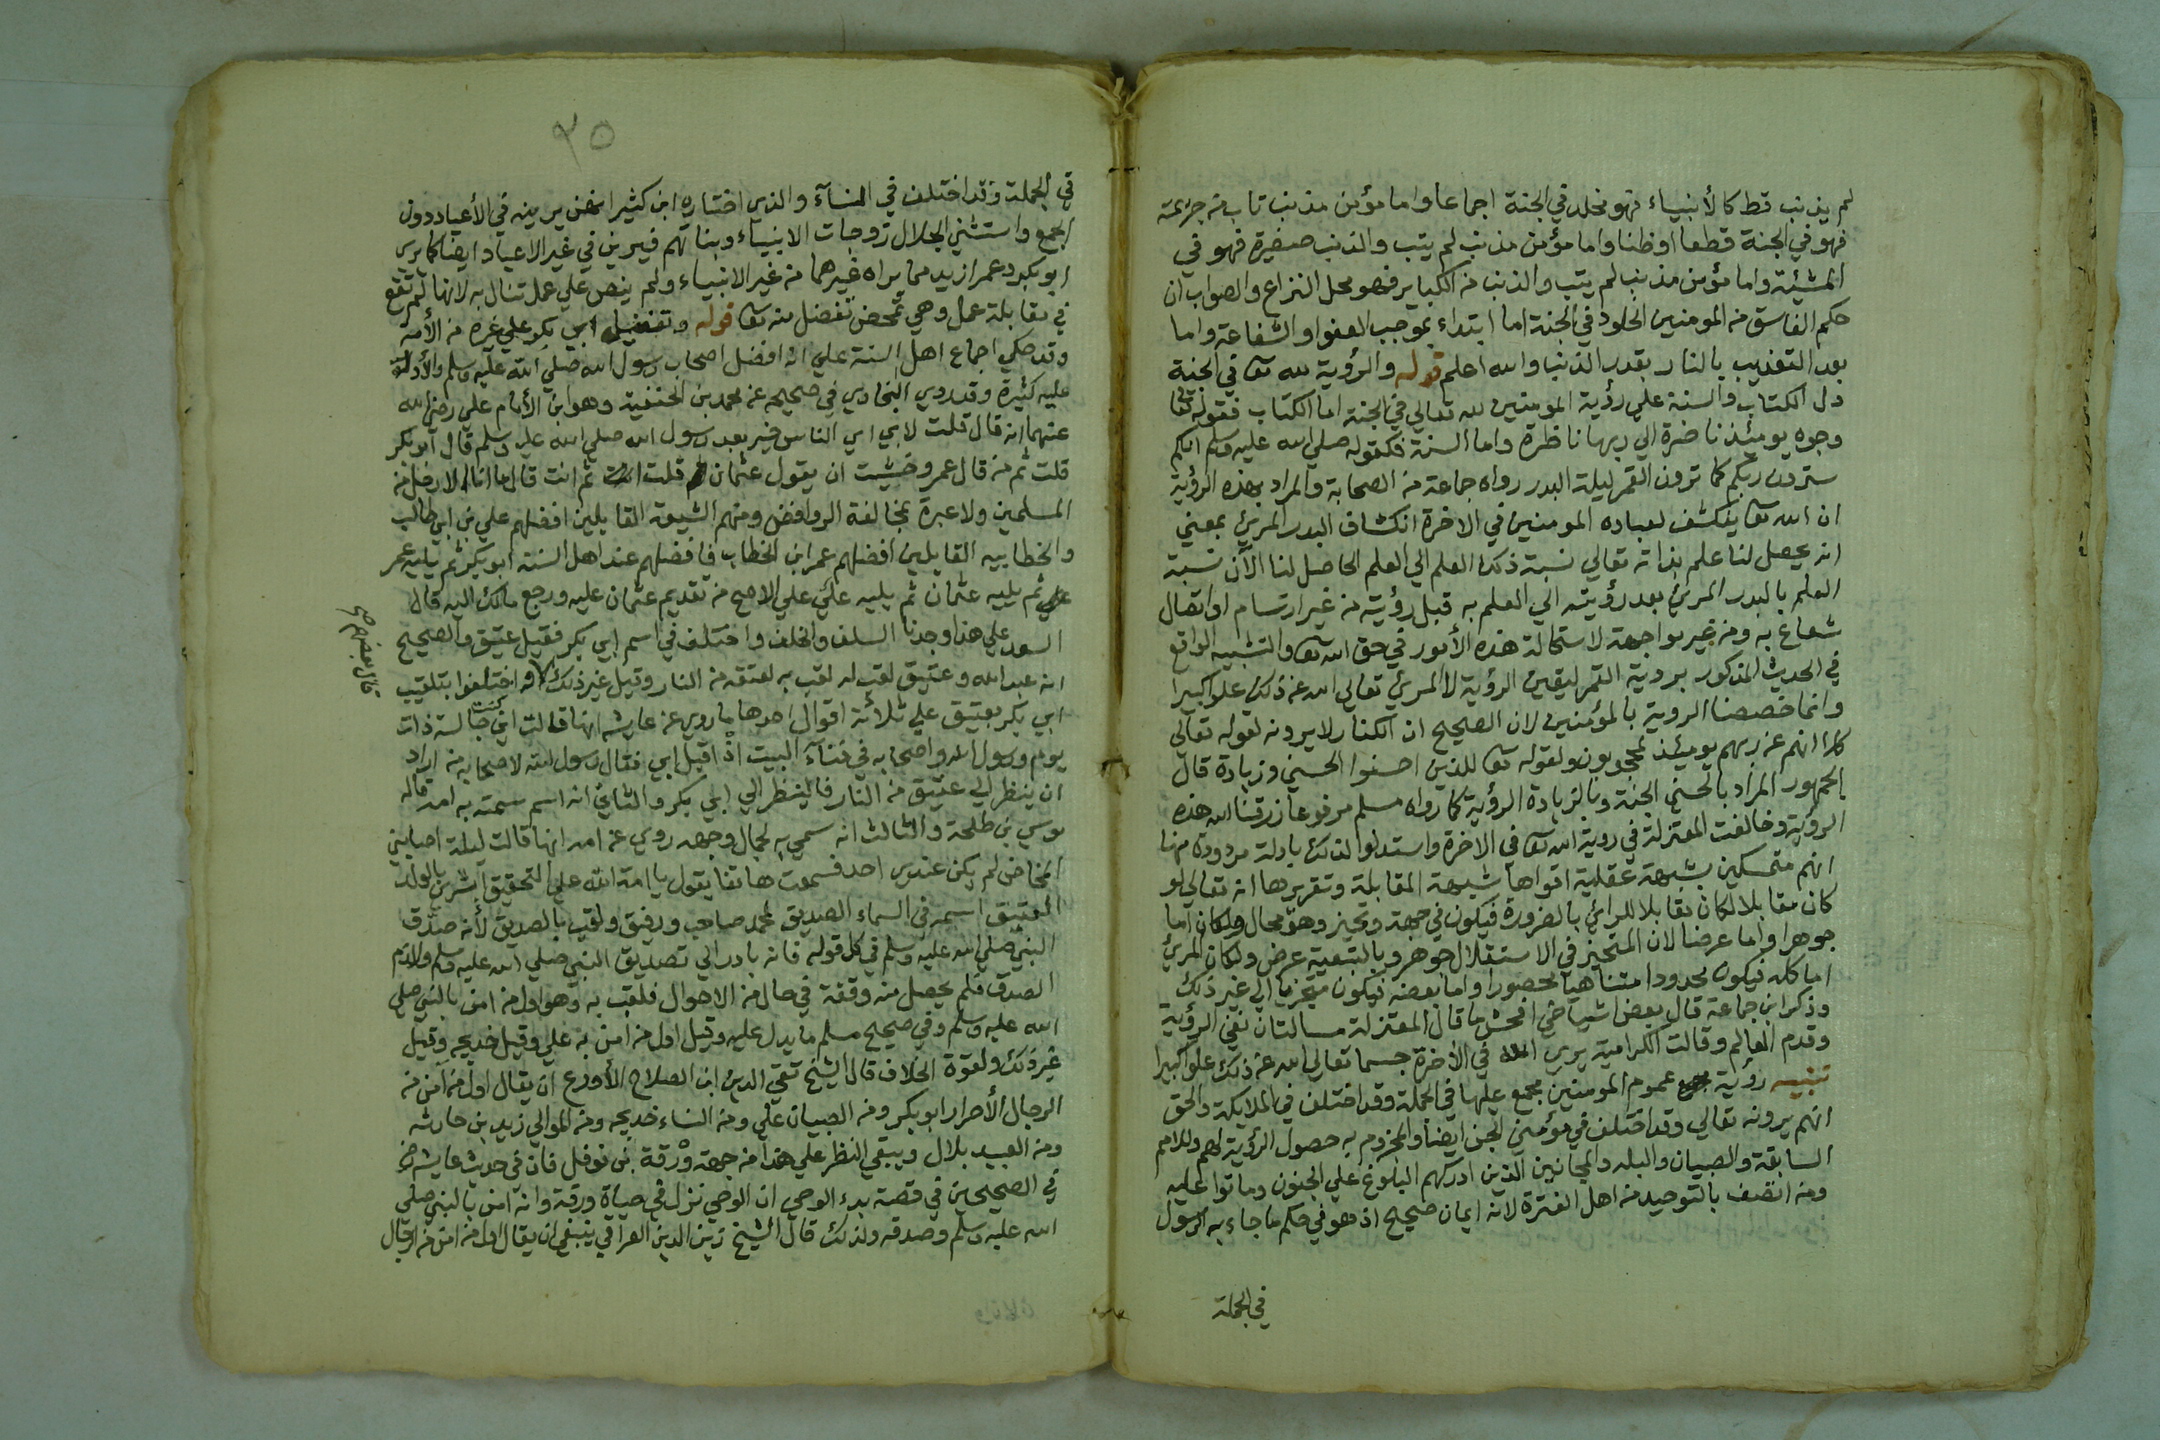 لم يذنب قط كالأنبياء فهو مخلد في الجنة اجماعا واما مؤمن مذنب تاب من جريمته
فهو في الجنة قطعا او ظنا واما مؤمن مذنب لم يتب والذنب صغيرة فهو في
المشيئة واما مؤمن مذنب لم يتب والذنب من الكباير فهو محل النزاع والصواب ان
حكم الفاسق من المومنين الخلود في الجنة اما ابتداء بموجب العفو او الشفاعة واما
بعد التعذيب بالنار بقدر الذنب والله اعلم قوله والرؤية لله تعا في الجنة
دل الكتاب والسنة على رؤية المومنين لله تعالي في الجنة اما الكتاب فقوله تعا
وجوه يومئذ ناضرة الي ربها ناظرة واما السنة فكقوله صلي الله عليه وسلم انكم
سترون ربكم كما ترون القمر ليلة البدر رواه جماعة من الصحابة والمراد بهذه الرؤية
ان الله تعا ينكشف لعباده المومنين في الاخرة انكشاف البدر المرئ بمعني
انه يحصل لنا علم بذاته تعالي نسبة ذلك العلم الي العلم الحاصل لنا الآن نسبة
العلم بالبدر المرئ بعد رؤيته الي العلم به قبل رؤيته من غير ارتسام او اتصال
شعاع به ومن غير مواجهة لاستحالة هذه الأمور في حق الله تعا والتشبيه الواقع
في الحديث المذكور بروية القمر ليقين الرؤية لا المرئ تعالي الله عن ذلك علوا كبيرا
وانما خصصنا الروية بالمؤمنين لان الصحيح ان الكفار لا يرونه لقوله تعالي
كلا انهم عن ربهم يومئذ لمحجوبون ولقوله تعا للذين احسنوا الحسني وزيادة قال
الجمهور المراد بالحسني الجنة وبالزيادة الرؤية كما رواه مسلم مرفوعا رزقنا الله هذه
الرؤية وخالفت المعتزلة في روية الله تعا في الاخرة واستدلوا لذلك بادلة مردودة منها
انهم متمسكين بشبهة عقلية اقواها شبهة المقابلة وتقريرها انه تعالي لو
كان مقابلا لكان مقابلا للرائي بالضرورة فيكون في جهة وتحيز وهو محال ولكان اما
جوهرا واما عرضا لان المتحيز في الاستقلال جوهر وبالتبعية عرض ولكان المرئ
اما كله فيكون محدودا متناهيا محصورا واما بعضه فيكون متجزيا الي غير ذلك
وذكر ابن جماعة قال بعض اشياخي افحش ما قال المعتزلة مسالتان نفي الرؤية
وقدم العالم وقالت الكرامية يري الله في الأخرة جسما تعالي الله عن ذلك علوا كبيرا
تنبيه رؤية عموم المومنين مجمع عليها في الجملة وقد اختلف في الملايكة والحق
انهم يرونه تعالي وقد اختلف في مؤمني الجن ايضا والمجزوم به حصول الرؤية لهم وللامم
السابقة والصبيان والبله والمجانين الذين ادركهم البلوغ علي الجنون وماتوا عليه
ومن اتصف بالتوحيد من اهل الفترة لانه ايمان صحيح اذ هو في حكم ما جاء به الرسول
في الجملة
٣٥
في الجملة وقد اختلف في النسآء والذي اختاره ابن كثير انهن يرينه في الأعياد دون
الجمع واستثني الجلال زوجات الانبياء وبناتهم فيرين في غير الاعياد ايضا كما يري
ابو بكر وعمر ازيد مما يراه غيرهما من غير الانبياء ولم ينص علي عمل تنال به لانها لم تقع
في مقابلة عمل وهي تمحض تفضل منه تعا قوله وتفضيل ابي بكر علي غيره من الأمة
وقد حكي اجماع اهل السنة علي انه افضل اصحاب رسول الله صلي الله عليه وسلم والأدلة
عليه كثيرة وقد روي البخاري في صحيحه عن محمد بن الحنفية وهو ابن الأمام علي رضي الله
عنهما انه قال قلت لابي اي الناس خير بعد رسول الله صلي الله عليه وسلم قال ابو بكر
قلت ثم من قال عمر وخشيت ان يقول عثمان قلت ثم انت قال ما انا الا رجل من
المسلمين ولا عبرة بمخالفة الروافض ومنهم الشيعة القايلين افضلهم علي بن ابي طالب
والخطابيه القايلين افضلهم عمر ابن الخطاب فافضلهم عند اهل السنة ابو بكر ثم يليه عمر
ثم يليه عثمان ثم يليه علي علي الاصح من تقديم عثمان عليه ورجع مالك اليه قال
السعد علي هذا وجدنا السلف والخلف واختلف في اسم ابي بكر فقيل عتيق والصحيح
انه عبد الله وعتيق لقب له لقب به لعتقه من النار وقيل غير ذلك واختلفوا بتلقيب
ابي بكر بعتيق علي ثلاثة اقوال احدها ما روي عن عايشه انها قالت اني كنت جالسة ذات
يوم ورسول الله واصحابه في فنآء البيت اذ اقبل ابي فقال رسول الله لاصحابه من اراد
ان ينظر الي عتيق من النار فالينظر الي ابي بكر والثاني انه اسم سمته به امه قاله
موسي بن طلحة والثالث انه سمي به لجمال وجهه روي عن امه انها قالت ليلة اصابني
المخاض لم يكن عندي احد فسمعت هاتفا يقول يا امة الله علي التحقيق ابشري بالولد
العتيق اسمه في السماء الصديق لمحمد صاحب ورفيق ولقب بالصديق لأنه صدق
النبي صلي الله عليه وسلم في كل قوله فانه بادر الي تصديق النبي صلي الله عليه وسلم ولازم
الصدق فلم يحصل منه وقفة في حال من الاحوال فلقب به وهو اول من امن بالنبي صلي
الله عليه وسلم وفي صحيح مسلم ما يدل عليه وقيل اول من امن به علي وقيل خديجه وقيل
غير ذلك ولقوة الخلاف قال الشيخ تقي الدين ابن الصلاح الأورع ان يقال اول من آمن من
الرجال الأحرار ابو بكر ومن الصبيان علي ومن النساء خديجه ومن الموالي زيد بن حارثه
ومن العبيد بلال ويبقي النظر علي هذا من جهة ورقة بن نوفل فان في حديث عايشه رضي
في الصحيحين في قصة بدء الوحي ان الوحي نزل في حياة ورقة وانه امن بالنبي صلي
الله عليه وسلم وصدقه ولذلك قال الشيخ زين الدين العراقي ينبغي ان يقال اول من امن من الرجال